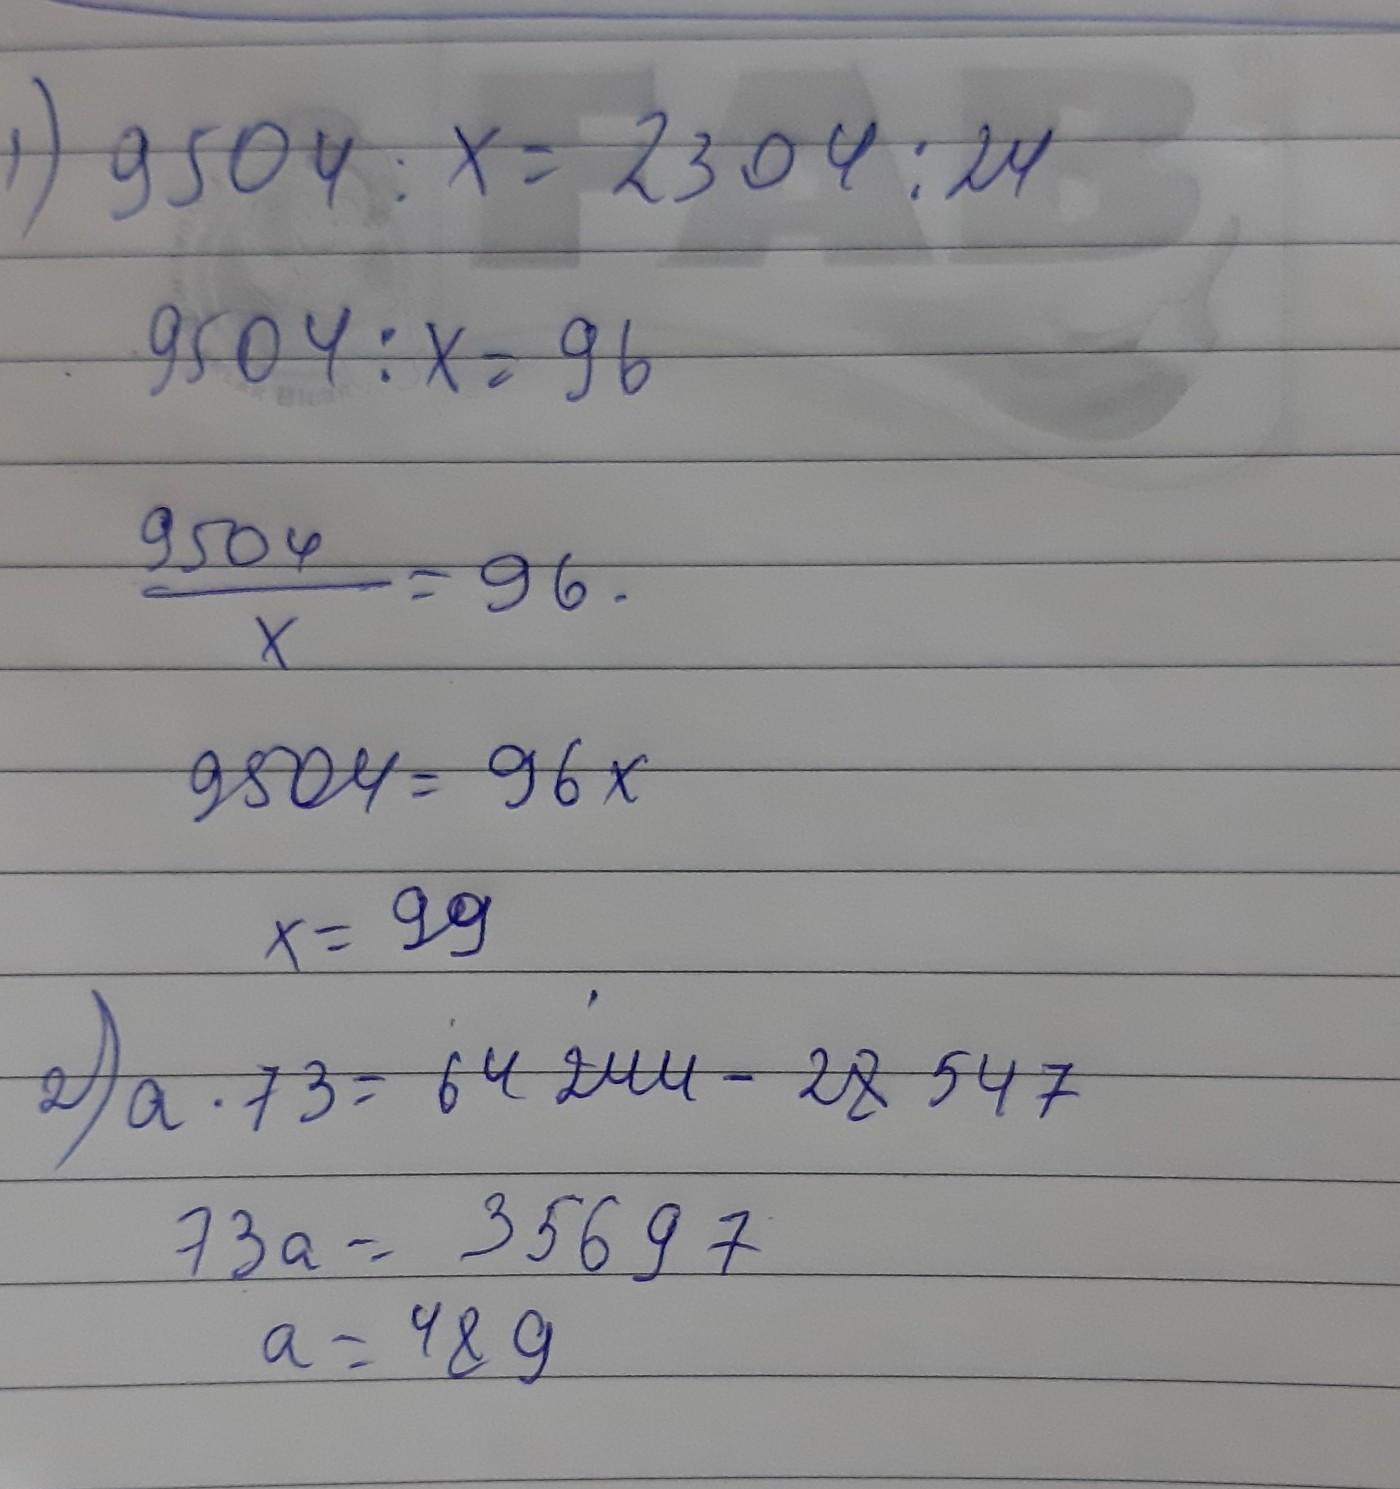 1) 9504 : x = 2304 : 24
FAB
9504 : x = 96
9504
x
= 96.
9504 = 96x
x = 99
2) a · 73 = 64 244 - 28 547
73a = 35697
a = 489